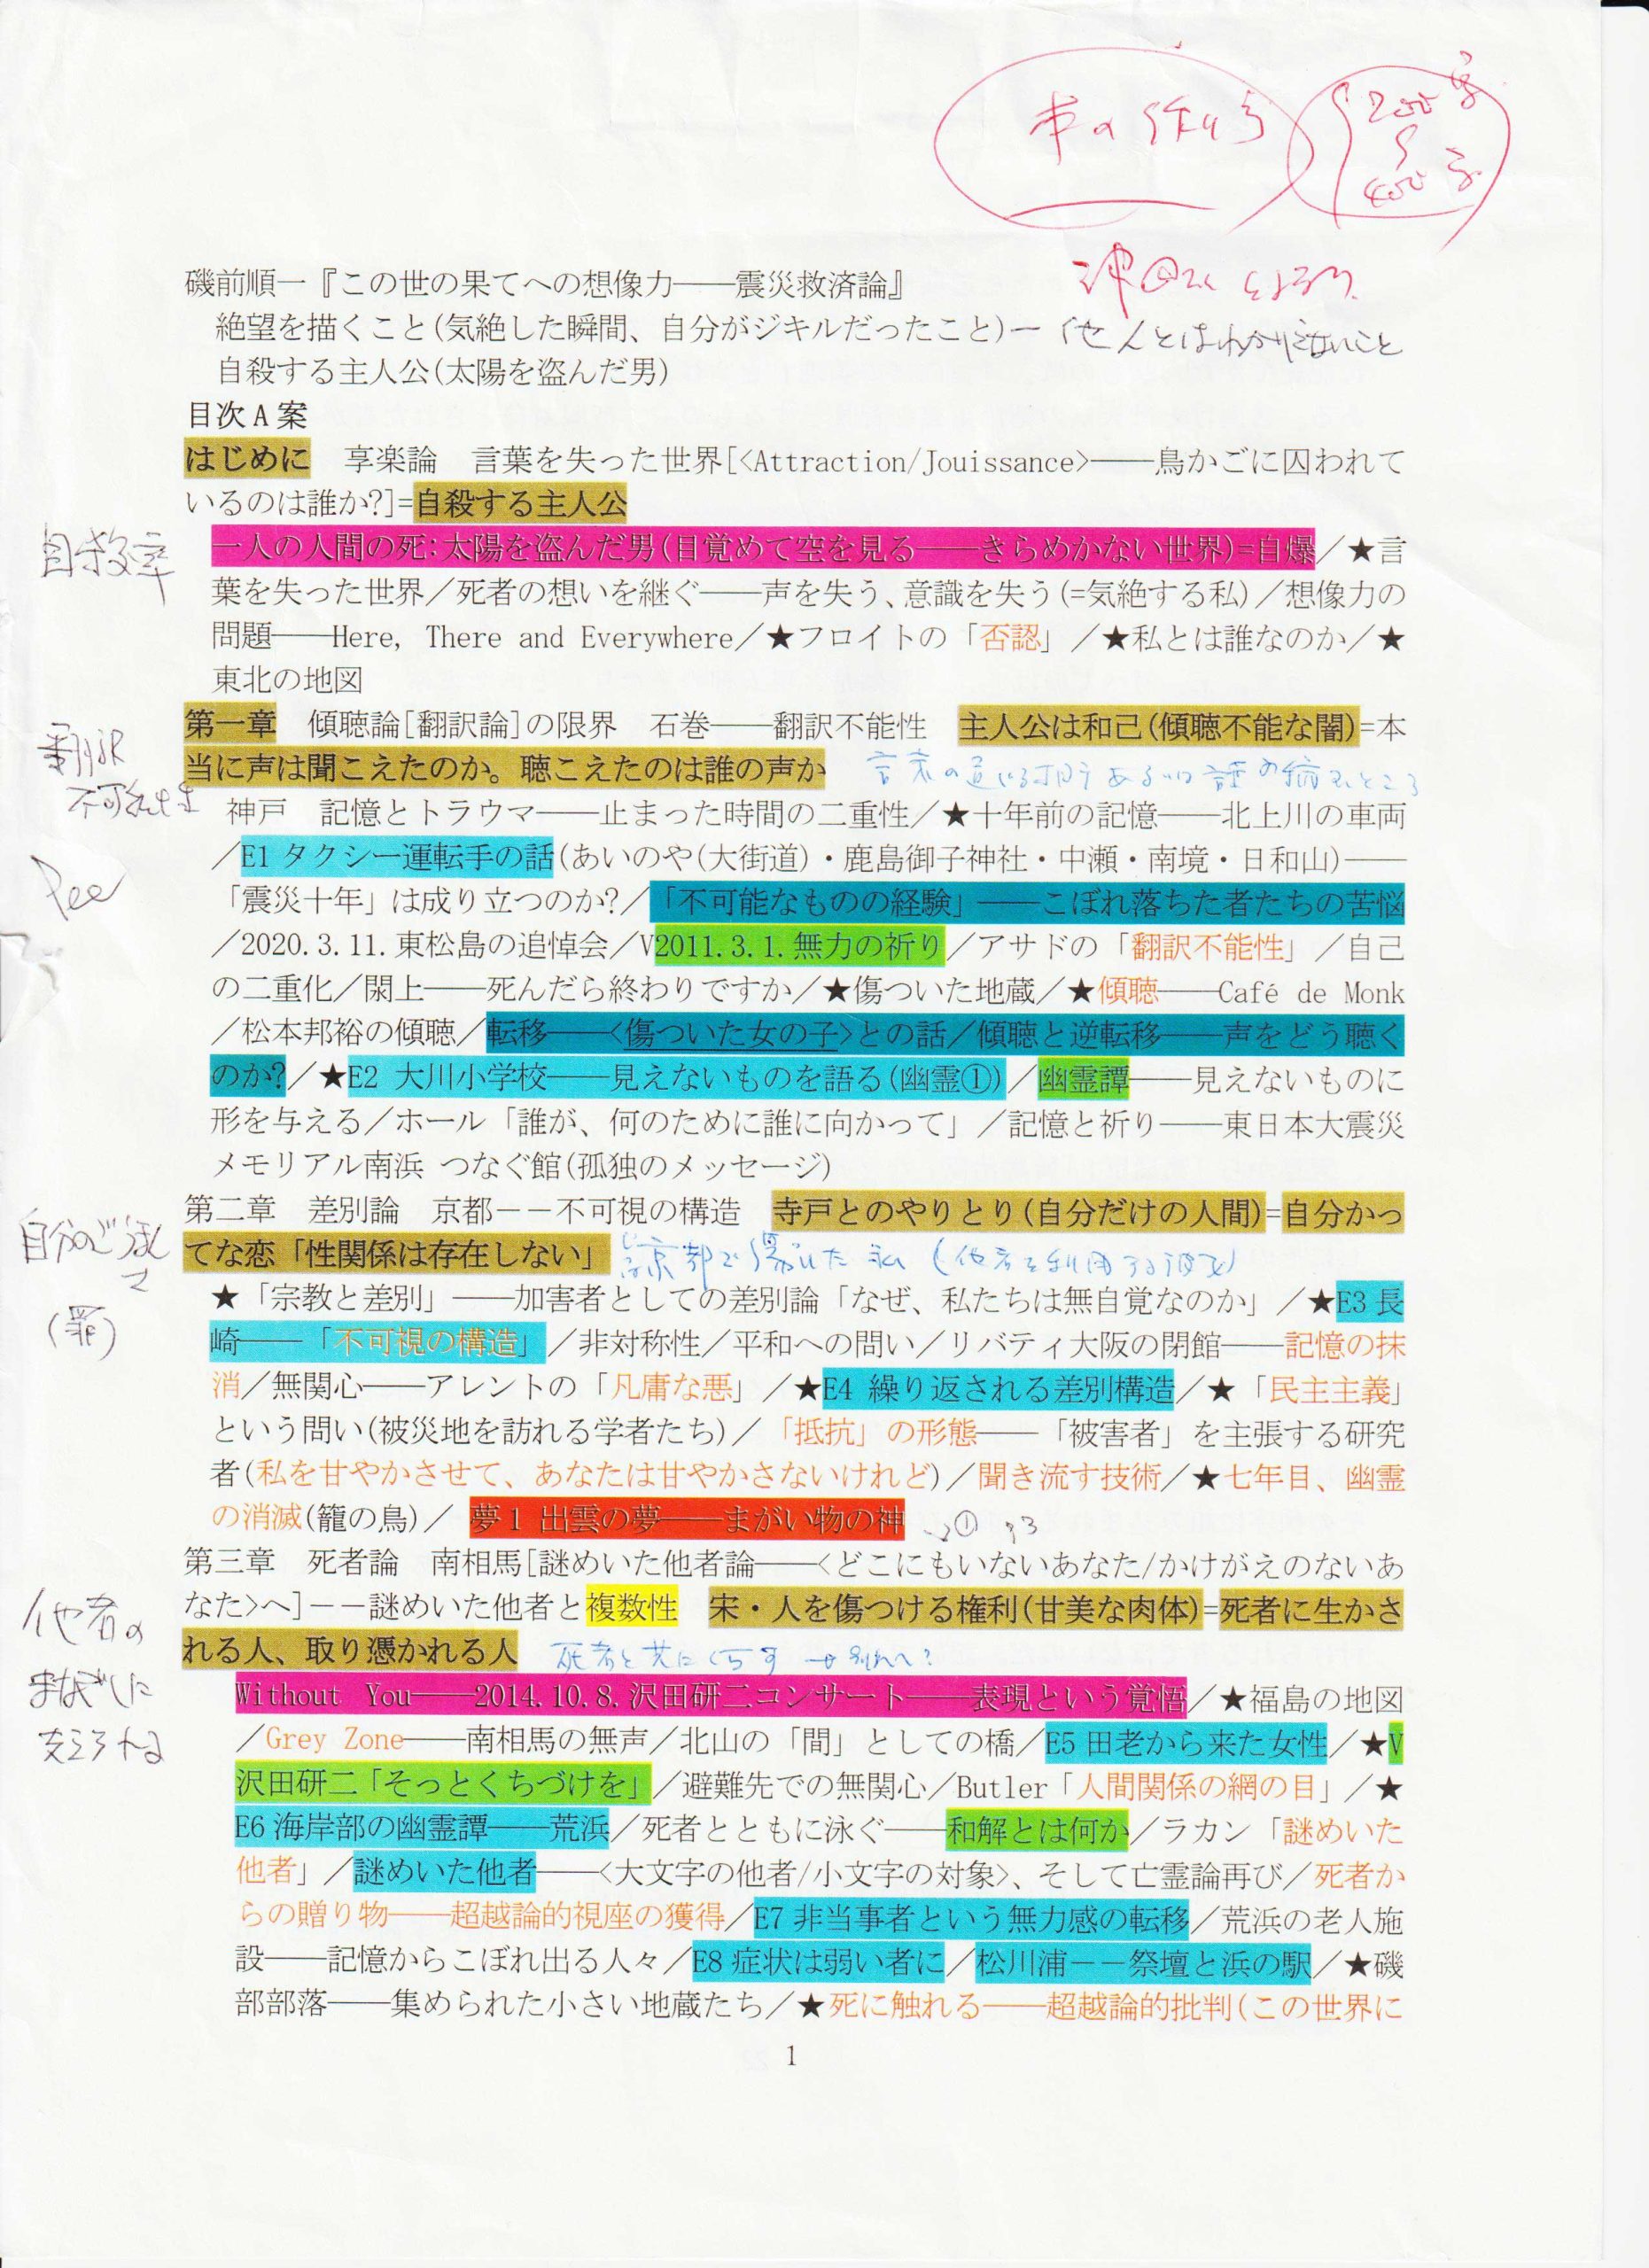 本の作り方
200字
〜
400字
磯前順一『この世の果てへの想像力――震災救済論』
絶望を描くこと(気絶した瞬間、自分がジキルだったこと)ー他人とはわかりえないこと
自殺する主人公(太陽を盗んだ男)
目次A案
はじめに 享楽論 言葉を失った世界[<Attraction/Jouissance>――鳥かごに囚われて
いるのは誰か?]=自殺する主人公
一人の人間の死:太陽を盗んだ男(目覚めて空を見る――きらめかない世界)=自爆／★言
葉を失った世界／死者の想いを継ぐ――声を失う、意識を失う(=気絶する私)／想像力の
問題――Here, There and Everywhere／★フロイトの「否認」／★私とは誰なのか／★
東北の地図
第一章 傾聴論[翻訳論]の限界 石巻――翻訳不能性 主人公は和己(傾聴不能な闇)=本
翻訳
不可能性
当に声は聞こえたのか。聴こえたのは誰の声か
神戸 記憶とトラウマ――止まった時間の二重性／★十年前の記憶――北上川の車両
／E1 タクシー運転手の話(あいのや(大街道)・鹿島御子神社・中瀬・南境・日和山)――
「震災十年」は成り立つのか?／「不可能なものの経験」――こぼれ落ちた者たちの苦悩
／2020.3.11.東松島の追悼会／V2011.3.1.無力の祈り／アサドの「翻訳不能性」／自己
の二重化／閖上――死んだら終わりですか／★傷ついた地蔵／★傾聴――Café de Monk
／松本邦裕の傾聴／転移――<傷ついた女の子>との話／傾聴と逆転移――声をどう聴く
のか?／★E2 大川小学校――見えないものを語る(幽霊①)／幽霊譚――見えないものに
形を与える／ホール「誰が、何のために誰に向かって」／記憶と祈り――東日本大震災
メモリアル南浜 つなぐ館(孤独のメッセージ)
第二章 差別論 京都－－不可視の構造 寺戸とのやりとり(自分だけの人間)=自分かっ
てな恋「性関係は存在しない」 京都で傷ついた私
(罪)
★「宗教と差別」――加害者としての差別論「なぜ、私たちは無自覚なのか」／★E3 長
崎――「不可視の構造」／非対称性／平和への問い／リバティ大阪の閉館――記憶の抹
消／無関心――アレントの「凡庸な悪」／★E4 繰り返される差別構造／★「民主主義」
という問い(被災地を訪れる学者たち)／「抵抗」の形態――「被害者」を主張する研究
者(私を甘やかさせて、あなたは甘やかさないけれど)／聞き流す技術／★七年目、幽霊
の消滅(籠の鳥)／ 夢1 出雲の夢――まがい物の神
第三章 死者論 南相馬[謎めいた他者論――<どこにもいないあなた/かけがえのないあ
なた>へ]－－謎めいた他者と複数性 宋・人を傷つける権利(甘美な肉体)=死者に生かさ
れる人、取り憑かれる人 死者と共にくらす
他者の
まなざしに
Without You――2014.10.8.沢田研二コンサート――表現という覚悟／★福島の地図
／Grey Zone――南相馬の無声／北山の「間」としての橋／E5 田老から来た女性／★V
沢田研二「そっとくちづけを」／避難先での無関心／Butler「人間関係の網の目」／★
E6 海岸部の幽霊譚――荒浜／死者とともに泳ぐ――和解とは何か／ラカン「謎めいた
他者」／謎めいた他者――<大文字の他者/小文字の対象>、そして亡霊論再び／死者か
らの贈り物――超越論的視座の獲得／E7 非当事者という無力感の転移／荒浜の老人施
設――記憶からこぼれ出る人々／E8 症状は弱い者に／松川浦－－祭壇と浜の駅／★磯
部部落――集められた小さい地蔵たち／★死に触れる――超越論的批判(この世界に
1